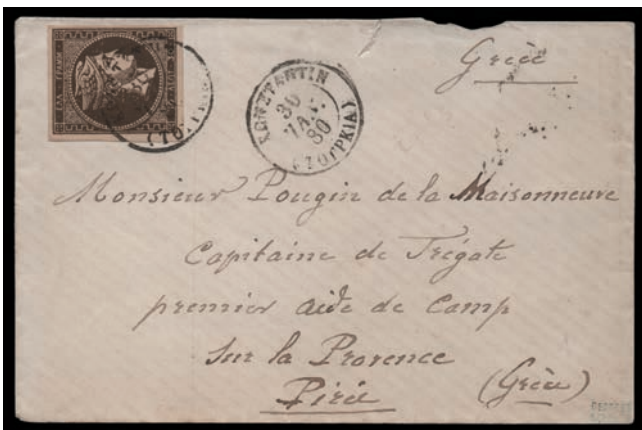 Grèce
ΕΛΛ. ΓΡΑΜΜ.
ΚΩΝΣΤΑΝΤΙΝ
30
ΙΑΝ.
80
(ΤΟΥΡΚΙΑ)
Monsieur Pougin de la Maisonneuve
Capitaine de Frégate
premier aide de Camp
sur la Provence
Pirée (Grèce)